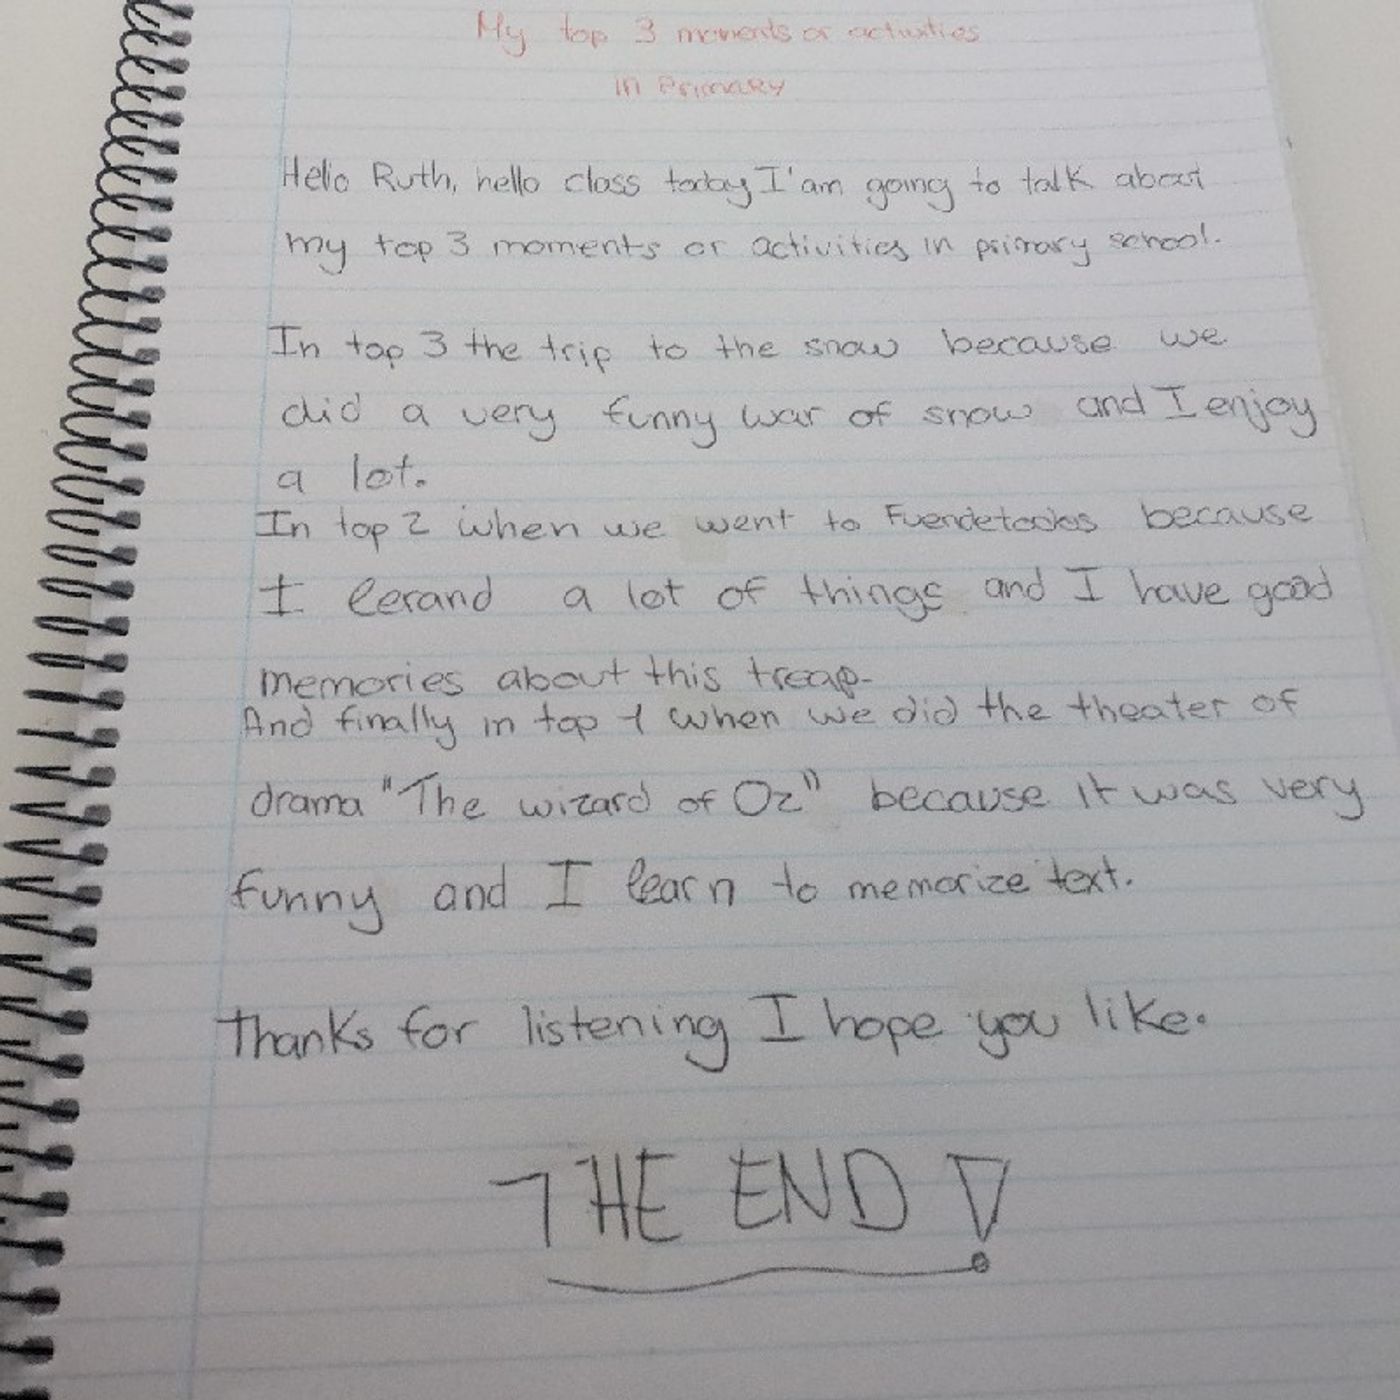 My top 3 moments or activities
in Primary
Hello Ruth, hello class today I'am going to talk about
my top 3 moments or activities in primary school.
In top 3 the trip to the snow because we
did a very funny war of snow and I enjoy
a lot.
In top 2 when we went to because
I lerand a lot of things and I have good
memories about this treap.
And finally in top 1 when we did the theater of
drama "The wizard of Oz" because it was very
funny and I learn to memorize text.
Thanks for listening I hope you like.
THE END!